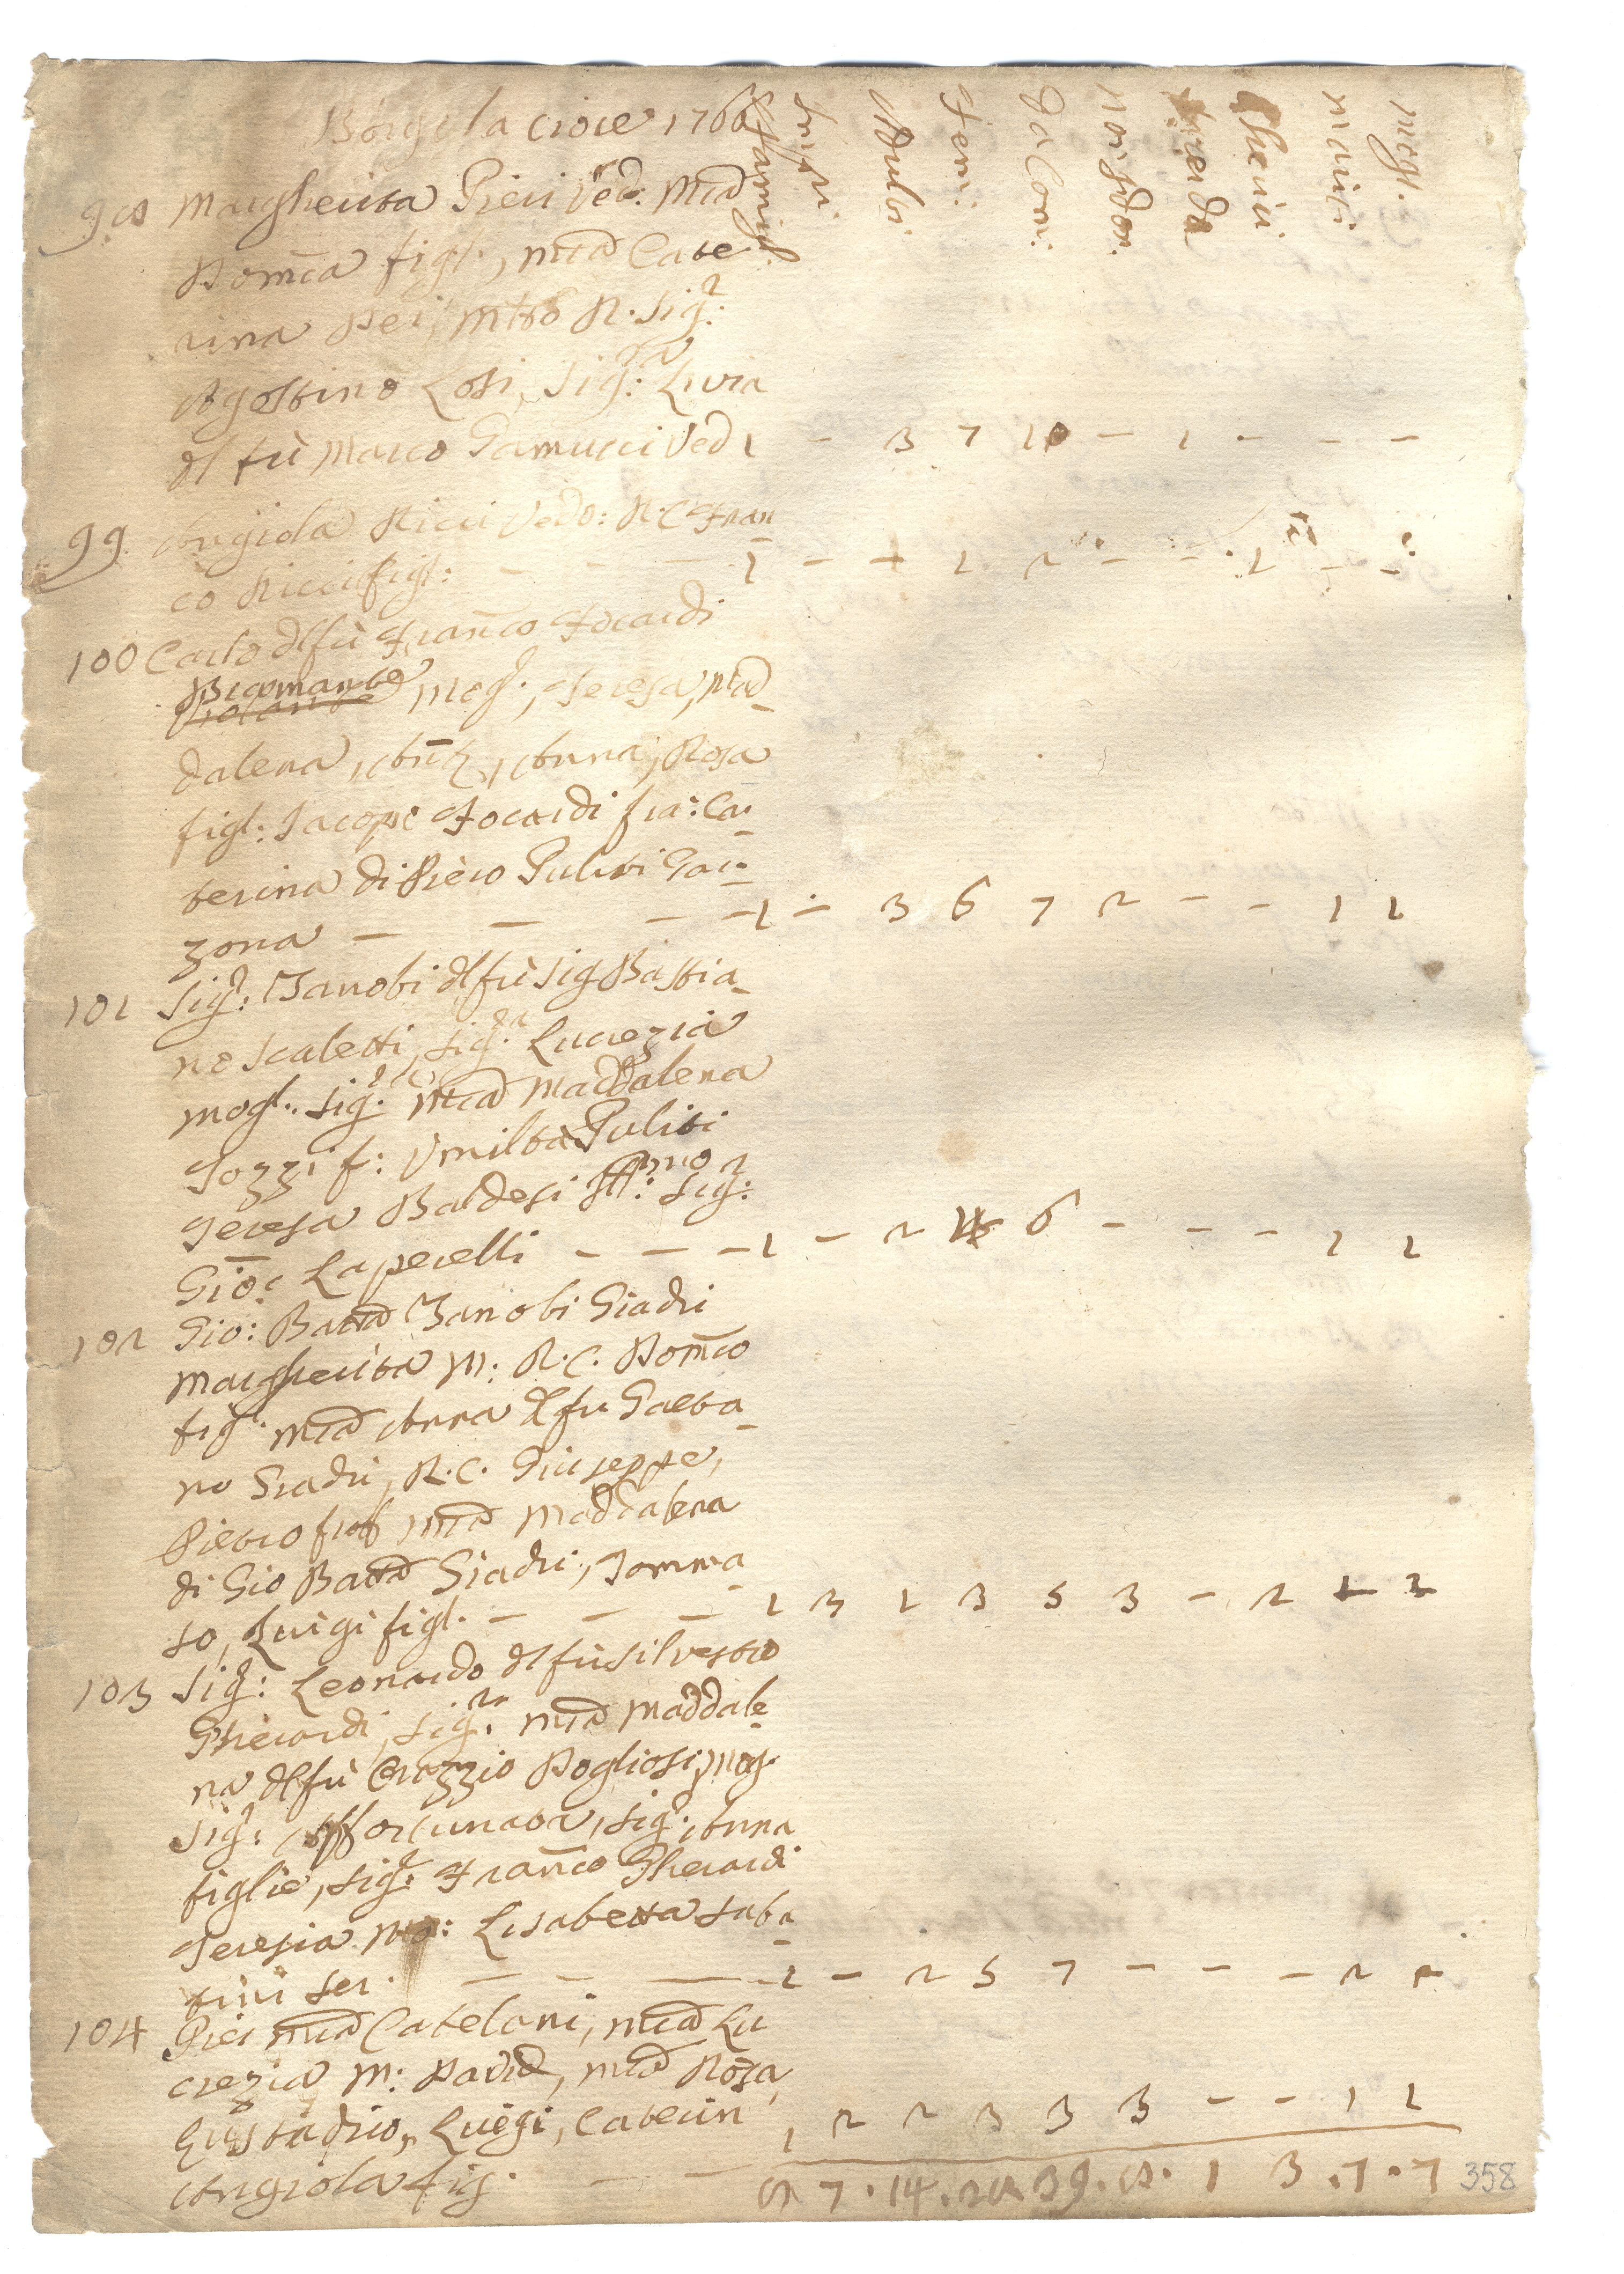 Borg: la croce 1766
Famigl. Infri. Adulti Fem: Da Com: non Da Com. Preti Da Chierici mariti mogl.
98 Margherita Pieri Ved: Mͣ
Domca figl., Mͣ Cate
rina Dei, mtro R. Sigr:
Agostino Losi, Sigra: Livia
dl fù Marco Gamucci Ved 1 - 3 7 10 - 1 - - -
99. Angiola Ricci Vedo: R. C. Fran
co Ricci figl: - - - 1 - + 1 2 - - 1 - -
100 Carlo dl fù Franco Focardi
Bramante mogl:, Teresa, Mad
dalena, Anna, Rosa
figl: Jacopo Focardi fra: Ca
terina di Piero Puliti Gar
zona - - - - 1 - 3 6 7 2 - - 1 1
101 Sigr: Zanobi dl fù Sig Bastia
no Scaletti, Sigra: Lucrezia
mogl. Sigra: Mͣ Maddalena
Tozzi f: Umiltà Puliti
Teresa Baldesi Sigr:
Gio: Laperelli - - - 1 - 2 4 6 - - - 1 1
102 Gio: Batta Zanobi Giadri
Margherita M: R. C. Domco
figl. Mͣ Anna dl fu Gaeta
no Giadri, R. C. Giuseppe,
Pietro frat Mͣ Maddalena
di Gio Batta Giadri, Tomma
so, Luigi figl. - - - 1 3 1 3 5 3 - 2 1 2
103 Sigr: Leonardo dl fù Silvestro
Gherardi, Sigra: Mͣ Maddale
na dl fù Orazzio Dogliosi mog.
Sigr: Affortunata, Sigr: Anna
figlie, Sigr: Franco Gherardi
Teresia mo: Lisabetta Saba
tini Ser. - - - 1 - 2 5 7 - - - 2 2
104 Pier Mͣ Catelani, Mͣ Lu
crezia M: David, Mͣ Rosa,
Eustadrio, Luigi, Caterin 1 2 2 3 3 3 - - 1 1
Angiola fig. - -
7 . 14 . 39 . 8 . 1 3 . 7 . 7
358